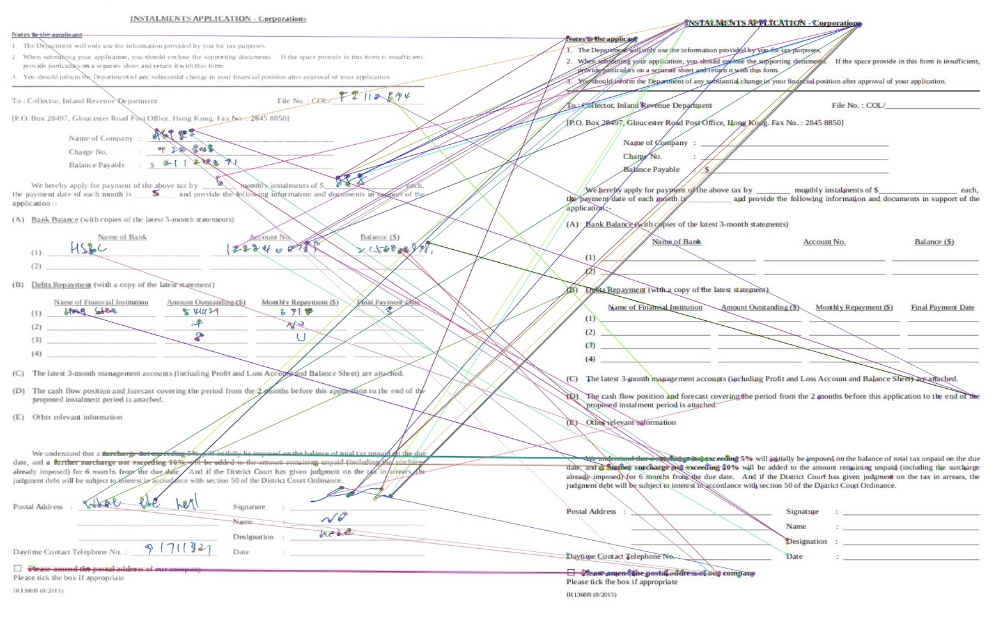 INSTALMENTS APPLICATION - Corporations
Notes to the applicant
1. The Department will only use the information provided by you for tax purposes.
2. When submitting your application, you should enclose the supporting documents. If the space in this form is insufficient,
provide particulars on a separate sheet and return it with this form.
3. You should inform the Department of any substantial change in your financial position after approval of your application.
To : Collector, Inland Revenue Department File No. : COL/
[P.O. Box 28497, Gloucester Road Post Office, Hong Kong. Fax No. : 2845 8850]
Name of Company :
Charge No. :
Balance Payable : $
We hereby apply for payment of the above tax by 6 monthly instalments of $ each,
the payment date of each month is 5 and provide the following information and documents in support of the
application :-
(A) Bank Balance (with copies of the latest 3-month statements)
Name of Bank Account No. Balance ($)
(1) HSBC
(2)
(B) Debts Repayment (with a copy of the latest statement)
Name of Financial Institution Amount Outstanding ($) Monthly Repayment ($) Final Payment Date
(1)
(2)
(3)
(4)
(C) The latest 3-month management accounts (including Profit and Loss Account and Balance Sheet) are attached.
(D) The cash flow position and forecast covering the period from the 2 months before this application to the end of the
proposed instalment period is attached.
(E) Other relevant information
We understand that a surcharge not exceeding 5% will initially be imposed on the balance of total tax unpaid on the due
date, and a further surcharge not exceeding 10% will be added to the amount remaining unpaid (including the surcharge
already imposed) for 6 months from the due date. And if the District Court has given judgment on the tax in arrears, the
judgment debt will be subject to interest in accordance with section 50 of the District Court Ordinance.
Postal Address : the hell Signature :
Name : No
Designation : here
Daytime Contact Telephone No. : 91711321 Date :
☐ Please amend the postal address of our company
Please tick the box if appropriate
IR1360B (8/2015)
INSTALMENTS APPLICATION - Corporations
Notes to the applicant
1. The Department will only use the information provided by you for tax purposes.
2. When submitting your application, you should enclose the supporting documents. If the space in this form is insufficient,
provide particulars on a separate sheet and return it with this form.
3. You should inform the Department of any substantial change in your financial position after approval of your application.
To : Collector, Inland Revenue Department File No. : COL/
[P.O. Box 28497, Gloucester Road Post Office, Hong Kong. Fax No. : 2845 8850]
Name of Company :
Charge No. :
Balance Payable : $
We hereby apply for payment of the above tax by monthly instalments of $ each,
the payment date of each month is and provide the following information and documents in support of the
application :-
(A) Bank Balance (with copies of the latest 3-month statements)
Name of Bank Account No. Balance ($)
(1)
(2)
(B) Debts Repayment (with a copy of the latest statement)
Name of Financial Institution Amount Outstanding ($) Monthly Repayment ($) Final Payment Date
(1)
(2)
(3)
(4)
(C) The latest 3-month management accounts (including Profit and Loss Account and Balance Sheet) are attached.
(D) The cash flow position and forecast covering the period from the 2 months before this application to the end of the
proposed instalment period is attached.
(E) Other relevant information
We understand that a surcharge not exceeding 5% will initially be imposed on the balance of total tax unpaid on the due
date, and a further surcharge not exceeding 10% will be added to the amount remaining unpaid (including the surcharge
already imposed) for 6 months from the due date. And if the District Court has given judgment on the tax in arrears, the
judgment debt will be subject to interest in accordance with section 50 of the District Court Ordinance.
Postal Address : Signature :
Name :
Designation :
Daytime Contact Telephone No. : Date :
☐ Please amend the postal address of our company
Please tick the box if appropriate
IR1360B (8/2015)